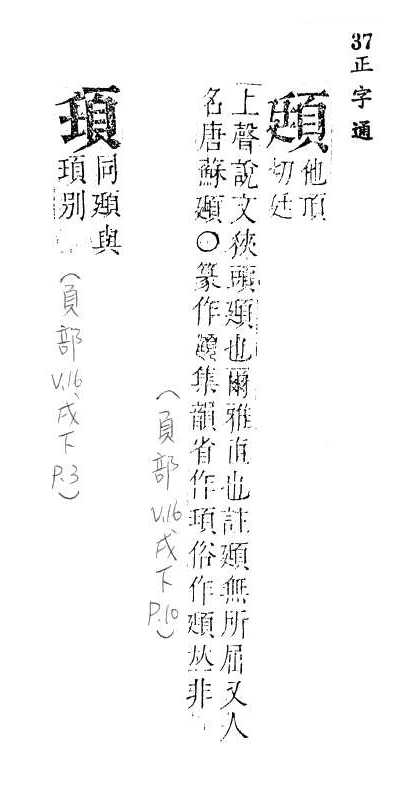 37正字通
頲
他頂
切廷
上聲說文狹頭頲也爾雅直也註頲無所屈又人
名唐蘇頲○篆作頲集韻省作俗作頲𠀤非
(頁部V.16、戌下P.10)
同頲與
頊别
(頁部V.16、戌下P.3)